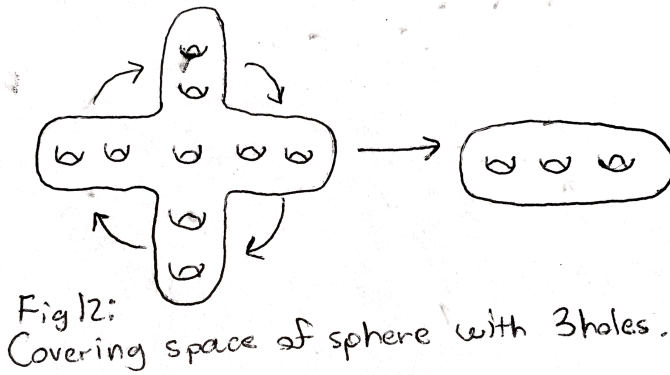 Fig 12:
Covering space of sphere with 3 holes.